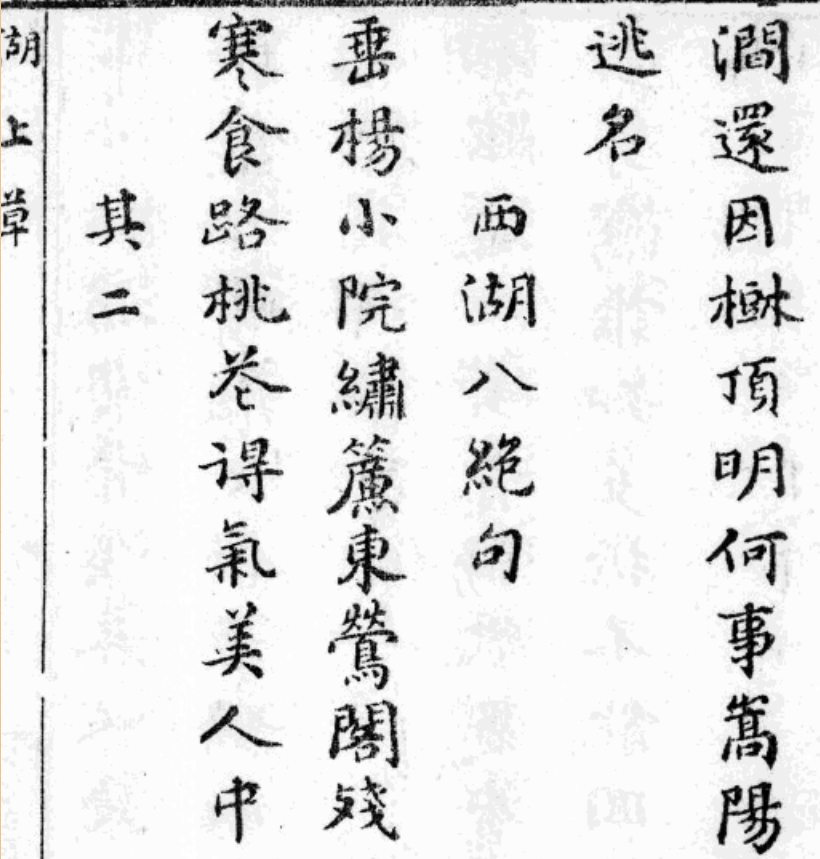 澗還因樾頂明何事嵩陽
逃名
西湖八絶句
垂楊小院繡簾東鶯閣殘
寒食路桃花得氣美人中
其二
湖上草